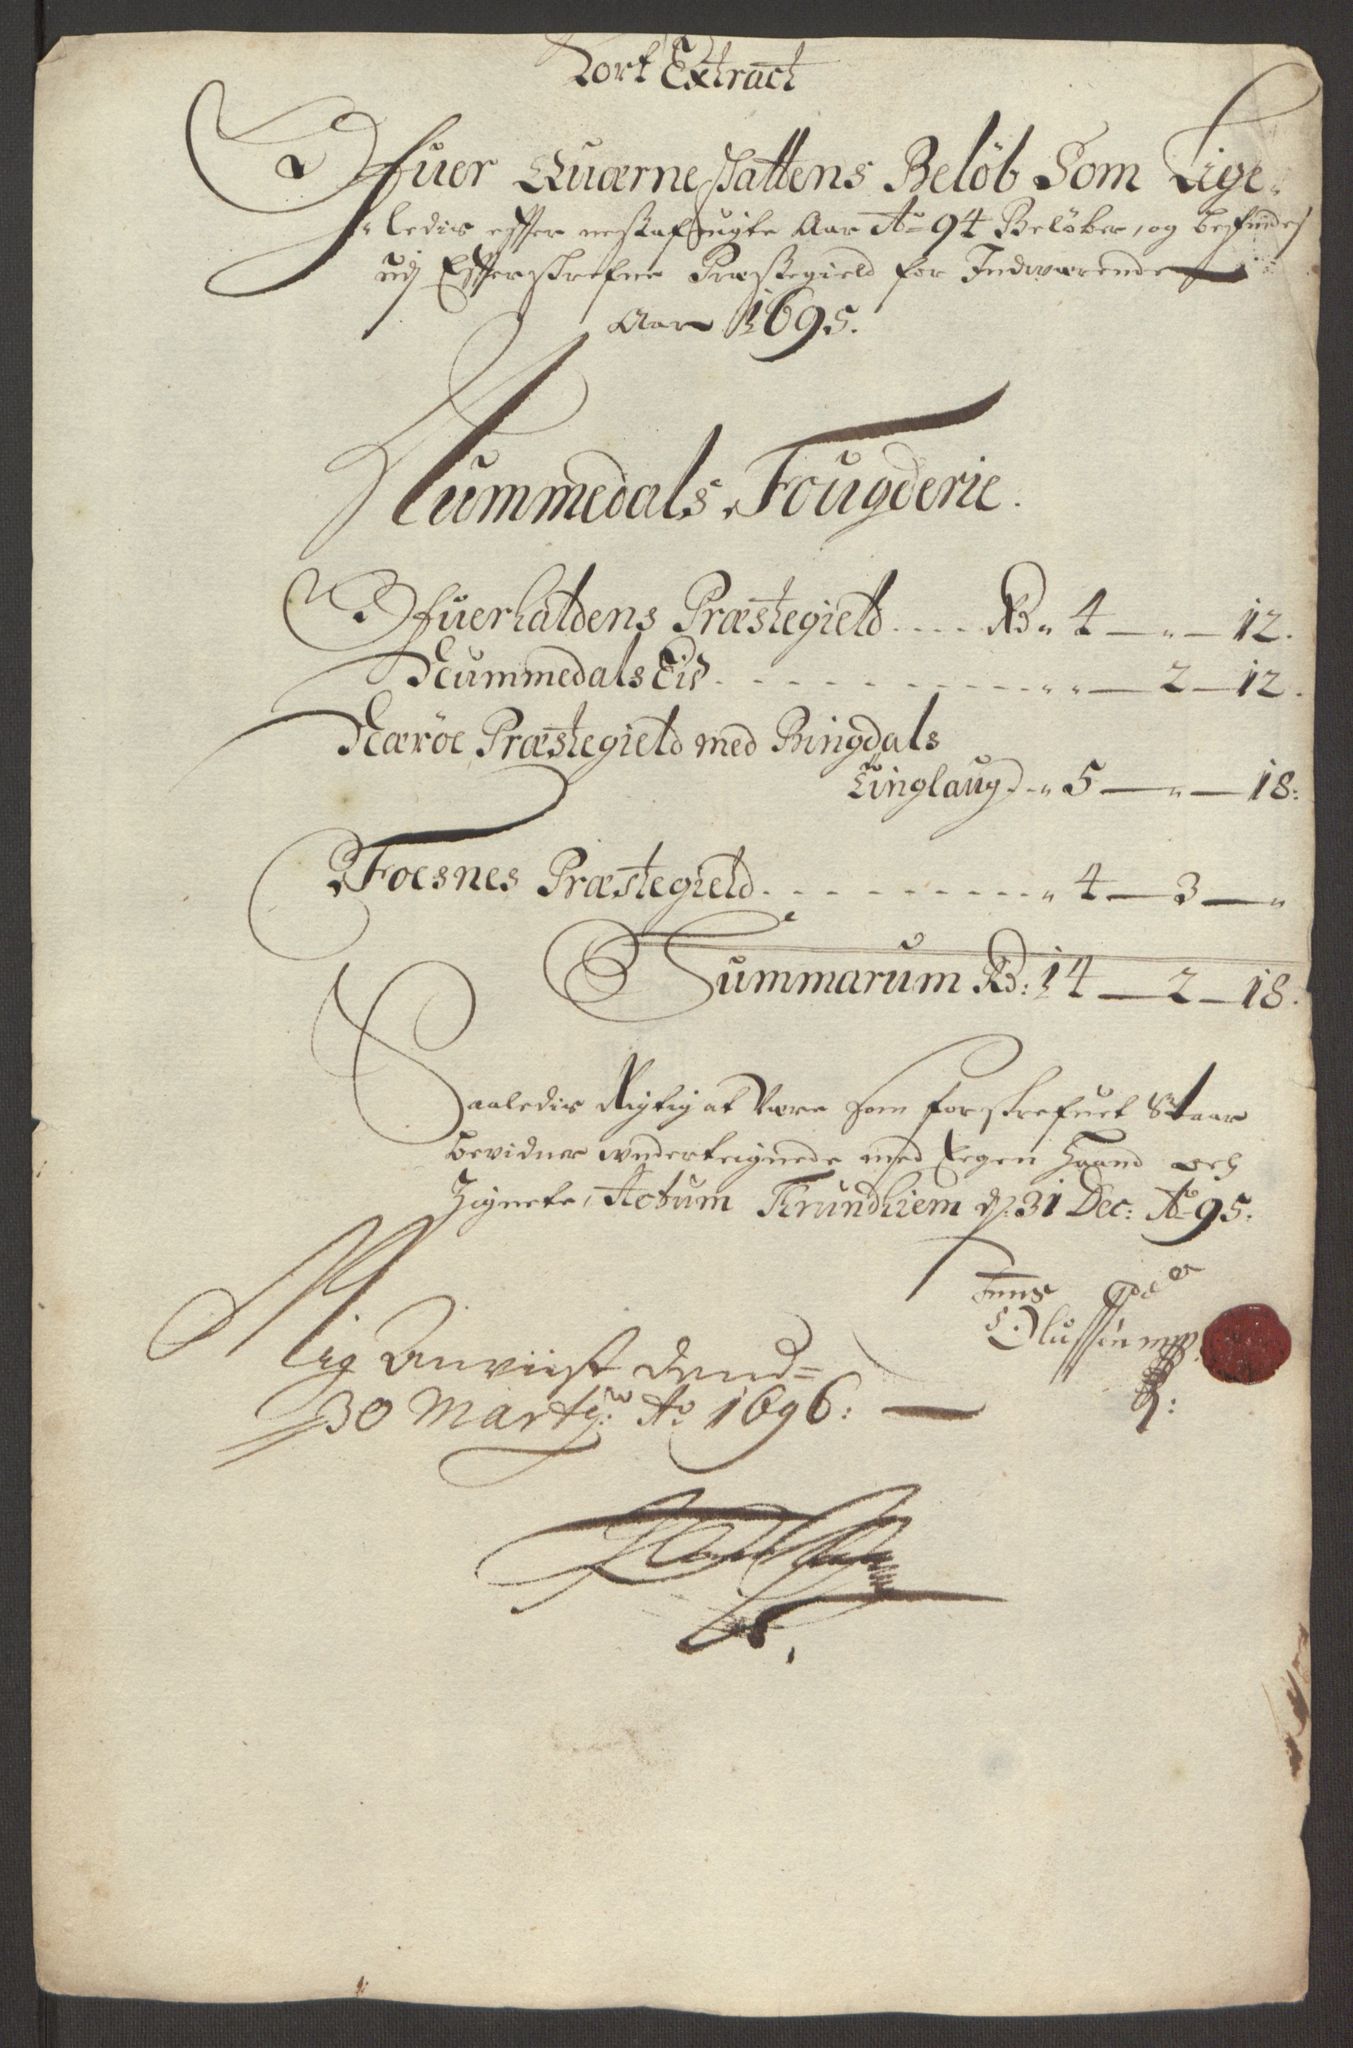 Kort Extract
Ofuer Quærne Skattens Beløb Som Lige„
„ledis efter nestafuigte Aar Ao 94 Beløber, og befindes
udj Efterskrefne Præstegield for Indwærende
Aar 1695.
Nummedals Fougderie.
Ofuerhaldens Præstegield .... Rd „ 4 — „ — 12.
Nummedals Eid . - - - - - - „ „ — 2 — 12.
Nærøe Præstegield med Bingdals
Tinglaug . - „ 5 — „ — 18:
Foesnes Præstegield . - - - - - - „ 4 — 3 — „
Summarum Rd: 14 — 2 — 18.
Saaledis Rigtig at Være som forskrefuet Staar
bevidner underteignede med Eegen Haand och
Zignete, Actum Trundhiem d: 31 Dec: Ao 95.
Jens
Olussøn mp
Mig Anviist dend=
30 Martij: Ao 1696: —